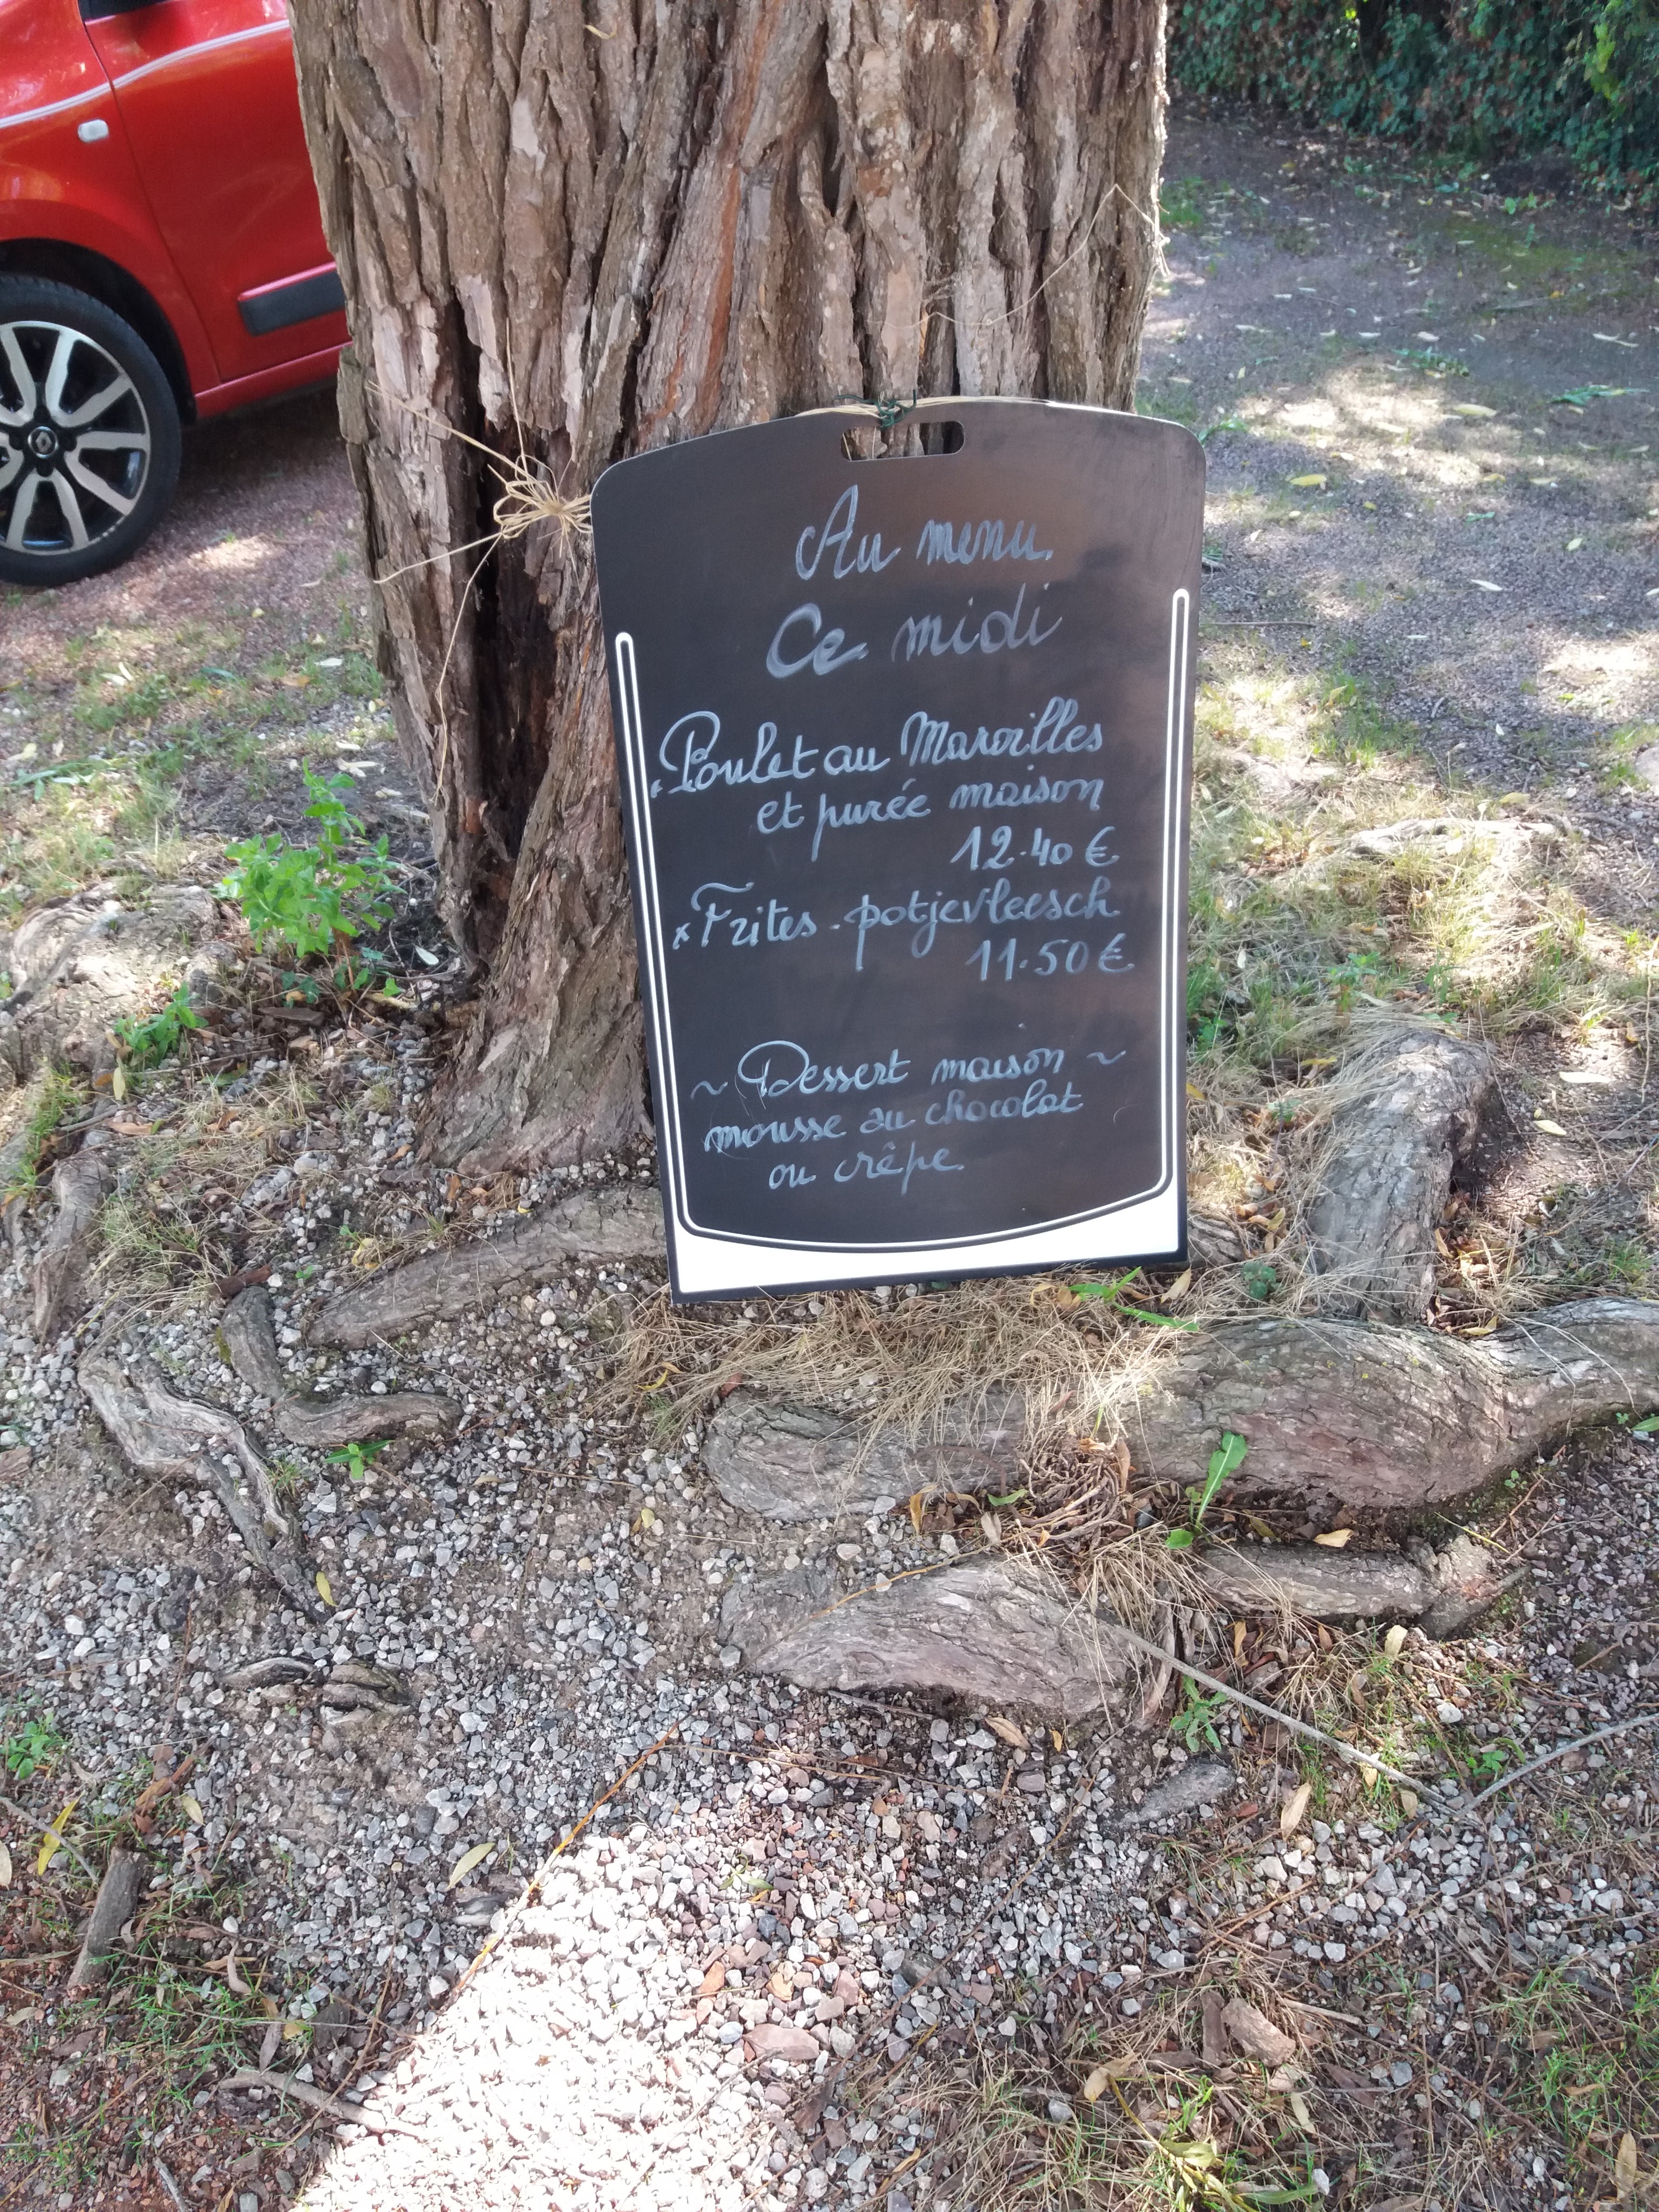 Au menu
Ce midi
x Poulet au Maroilles
et purée maison
12.40 €
x Frites - potjevleesch
11.50 €
~ Dessert maison ~
mousse au chocolat
ou crêpe